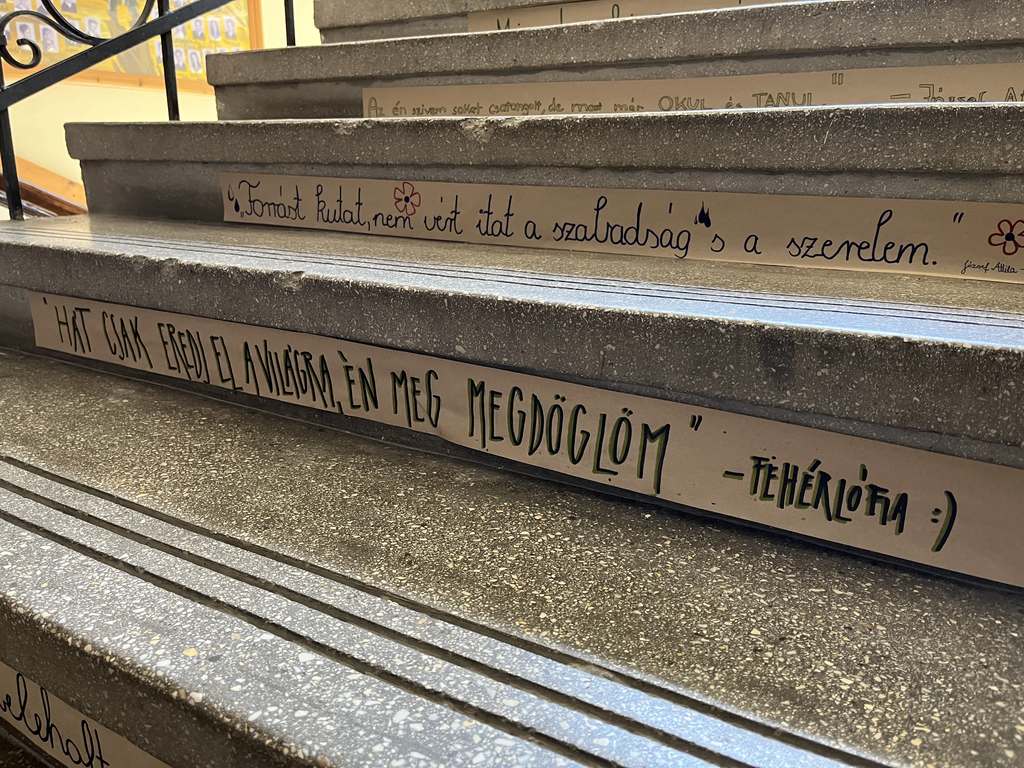 Az én szívem sokat csatangolt, de most már OKUL és TANUL" – József
„Forrást kutat, nem vért itat a szabadság s a szerelem."
József Attila
"HÁT CSAK EREDJ EL A VILÁGRA, ÉN MEG MEGDÖGLÖM" – FEHÉRLÓFIA :)